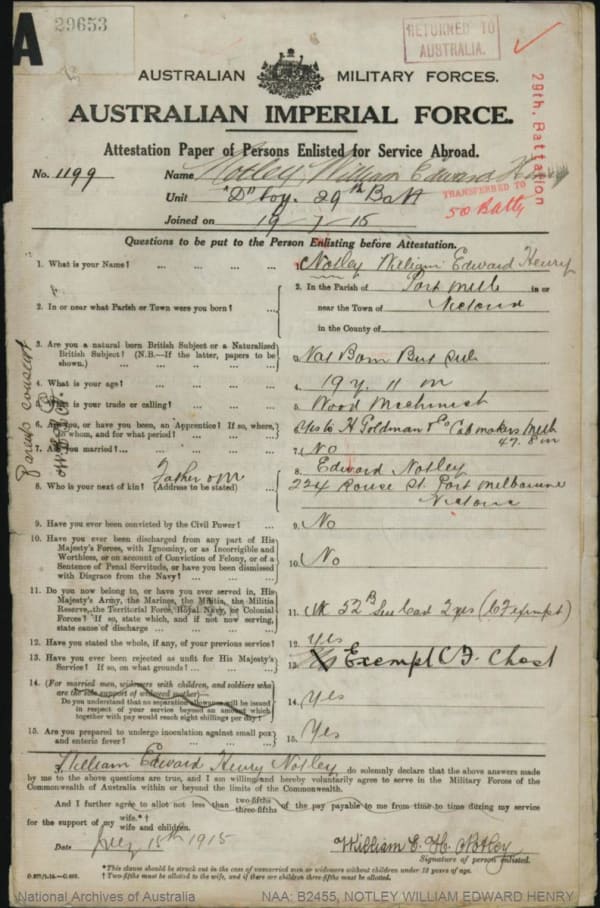 A
29653
RETURNED TO
AUSTRALIA.
AUSTRALIAN MILITARY FORCES.
AUSTRALIAN IMPERIAL FORCE.
29th. Battalion
Attestation Paper of Persons Enlisted for Service Abroad.
No. 1199 Name Notley, William Edward Henry
Unit "D" Coy. 29th Batt
TRANSFERRED TO
50 Batty
Joined on 19-7-15
Questions to be put to the Person Enlisting before Attestation.
1. What is your Name? ... ... ... ... 1. Notley William Edward Henry
2. In or near what Parish or Town were you born? ... 2. In the Parish of Port Melb in or
near the Town of Victoria
in the County of
3. Are you a natural born British Subject or a Naturalized
British Subject? (N.B.—If the latter, papers to be
shown.) ... ... ... ... 3. Nat Born Brit Sub
4. What is your age? ... ... ... ... 4. 19 y. 11 m
5. What is your trade or calling? ... ... ... 5. Wood Machinist
6. Are you, or have you been, an Apprentice? If so, where,
to whom, and for what period? ... ... ... 6. Yes to H Goldman & Co Cab makers Melb
4y. 8 m
7. Are you married? ... ... ... ... 7. No
Parents consent
Father
8. Who is your next of kin? (Address to be stated) ... 8. Edward Notley
224 Rouse St. Port Melbourne
Victoria
9. Have you ever been convicted by the Civil Power? ... 9. No
10. Have you ever been discharged from any part of His
Majesty's Forces, with Ignominy, or as Incorrigible and
Worthless, or on account of Conviction of Felony, or of a
Sentence of Penal Servitude, or have you been dismissed
with Disgrace from the Navy? ... ... ... 10. No
11. Do you now belong to, or have you ever served in, His
Majesty's Army, the Marines, the Militia, the Militia
Reserve, the Territorial Force, Royal Navy, or Colonial
Forces? If so, state which, and if not now serving,
state cause of discharge ... ... ... 11. 52 B Sen Cad 2 yrs (CF exempt)
12. Have you stated the whole, if any, of your previous service? 12. Yes
13. Have you ever been rejected as unfit for His Majesty's
Service? If so, on what grounds? ... ... ... 13. Exempt C.F. Chest
14. (For married men, widowers with children, and soldiers who
are the sole support of widowed mother)—
Do you understand that no separation allowance will be issued
in respect of your service beyond an amount which
together with pay would reach eight shillings per day? 14. Yes
15. Are you prepared to undergo inoculation against small pox
and enteric fever? ... ... ... ... 15. Yes
I, William Edward Henry Notley, do solemnly declare that the above answers made
by me to the above questions are true, and I am willing and hereby voluntarily agree to serve in the Military Forces of the
Commonwealth of Australia within or beyond the limits of the Commonwealth.
And I further agree to allot not less than two-fifths
three-fifths of the pay payable to me from time to time during my service
for the support of my wife.*†
wife and children.
Date July 15th 1915 William E. H. Notley
Signature of person enlisted.
*This clause should be struck out in the case of unmarried men or widowers without children under 18 years of age.
† Two-fifths must be allotted to the wife, and if there are children three-fifths must be allotted.
National Archives of Australia NAA: B2455, NOTLEY WILLIAM EDWARD HENRY